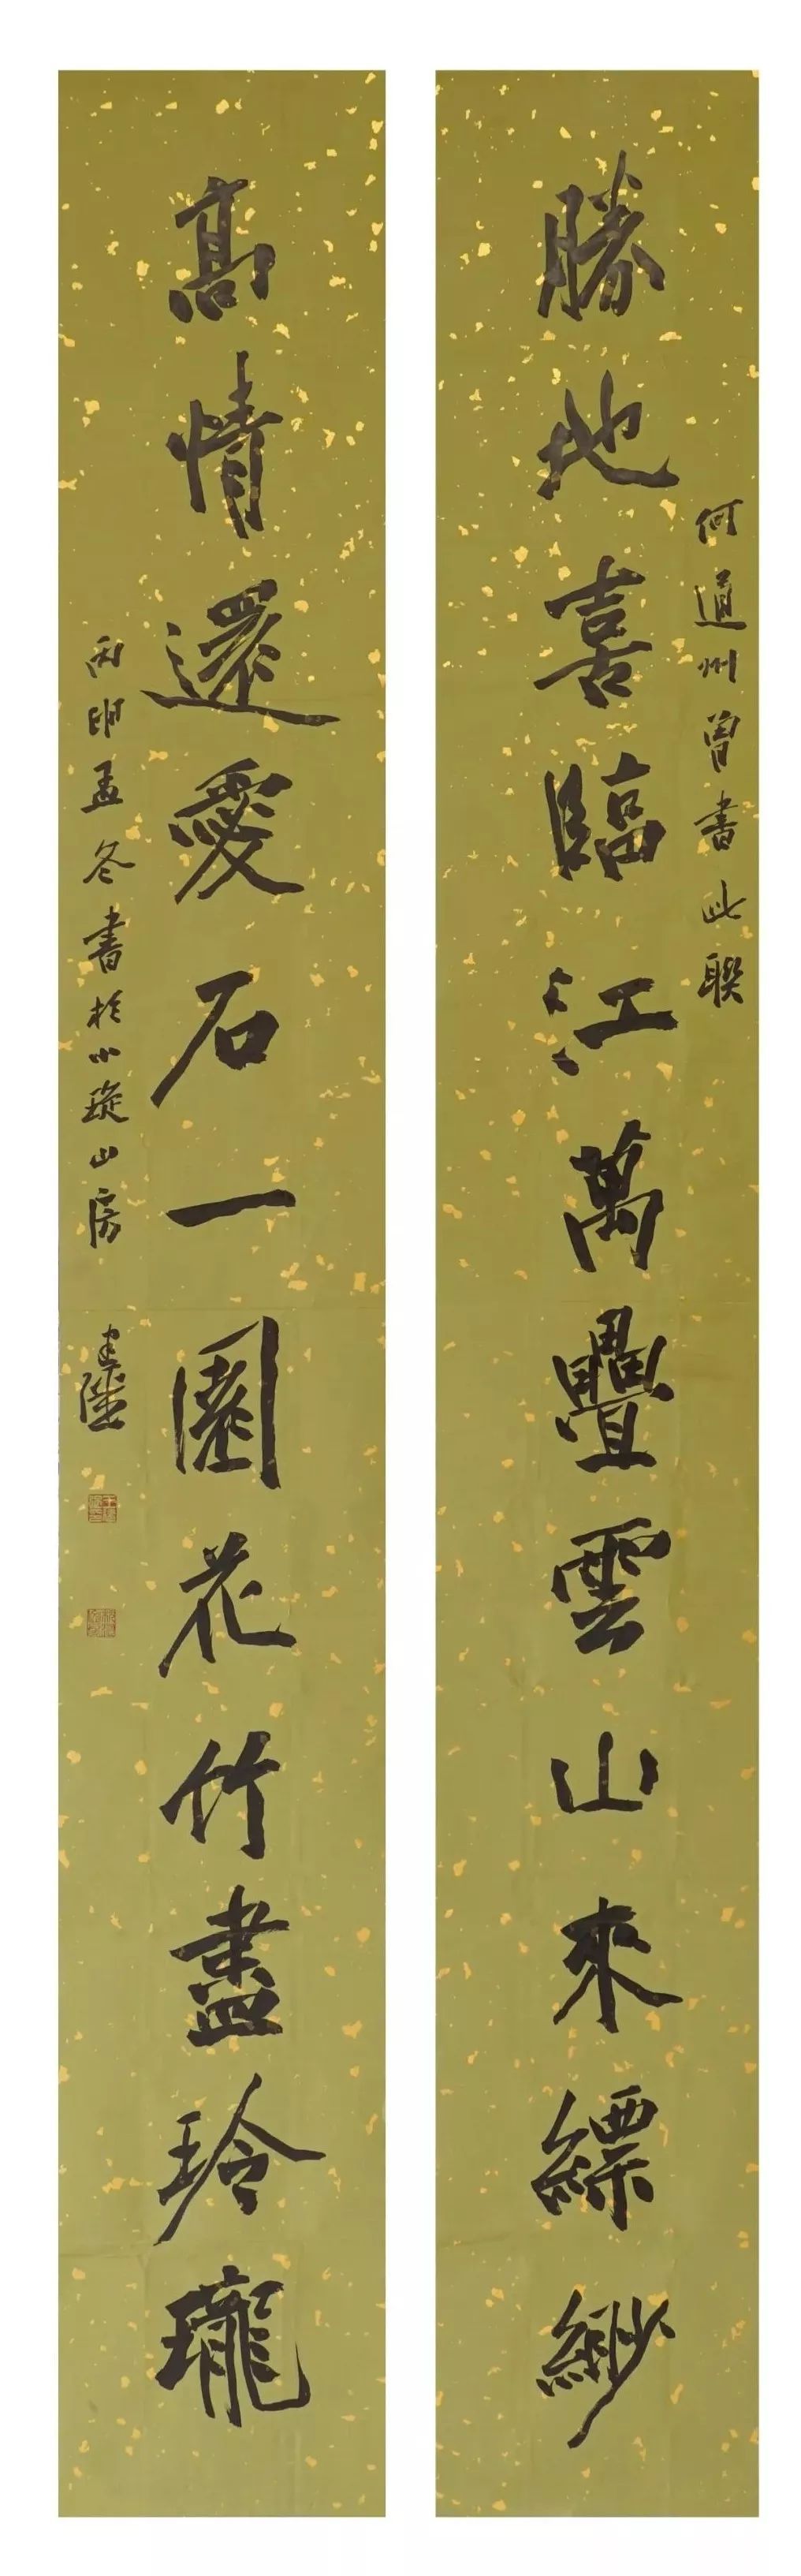 勝地喜臨江萬疊雲山來縹緲
何道州曾書此聯
高情還愛石一園花竹盡玲瓏
丙申孟冬書於小璇山房